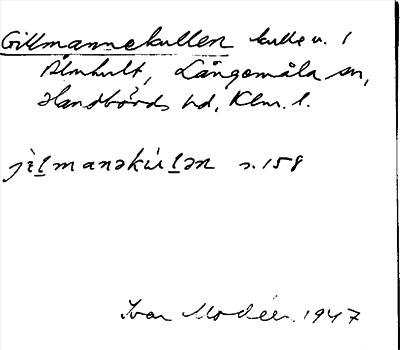 Gillmannekullen kulle v. 1
Älmhult, Långemåla sn,
Handbörds hd, Klm. l.
jìḻmanəkùḻən s. 158
Ivar Modéer 1947